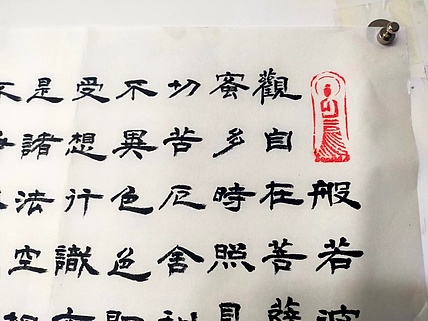 般若波
觀自在菩薩
蜜多時照見
切苦厄舍利
不異色色即
受想行識亦
是諸法空相